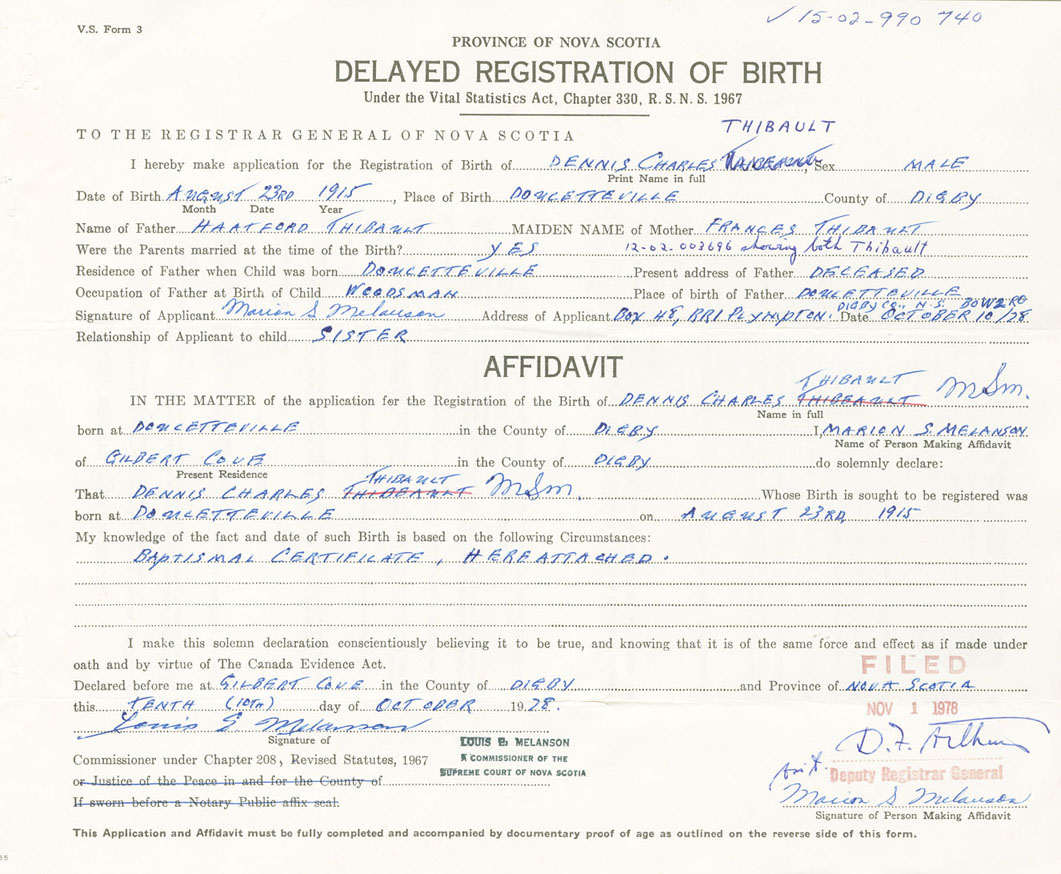 V.S. Form 3
✓ 15-02-990 740
PROVINCE OF NOVA SCOTIA
DELAYED REGISTRATION OF BIRTH
Under the Vital Statistics Act, Chapter 330, R. S. N. S. 1967
THIBAULT
TO THE REGISTRAR GENERAL OF NOVA SCOTIA
I hereby make application for the Registration of Birth of DENNIS CHARLES Sex MALE
Print Name in full
Date of Birth AUGUST 23RD 1915, Place of Birth DOUCETTEVILLE County of DIGBY
Month Date Year
Name of Father HARTFORD THIBAULT MAIDEN NAME of Mother FRANCES THIBAULT
Were the Parents married at the time of the Birth? YES 12-02-003696 showing both Thibault
Residence of Father when Child was born DOUCETTEVILLE Present address of Father DECEASED
Occupation of Father at Birth of Child WOODSMAN Place of birth of Father DOUCETTEVILLE
DIGBY CO., N.S. BOW 2R0
Signature of Applicant Marion S Melanson Address of Applicant BOX 48, RR1 PLYMPTON. Date OCTOBER 10/78
Relationship of Applicant to child SISTER
AFFIDAVIT
THIBAULT MSM.
IN THE MATTER of the application for the Registration of the Birth of DENNIS CHARLES THIBEAULT
Name in full
born at DOUCETTEVILLE in the County of DIGBY I, MARION S. MELANSON
Name of Person Making Affidavit
of GILBERT COVE in the County of DIGBY do solemnly declare:
Present Residence THIBAULT
That DENNIS CHARLES THIBEAULT MSM. Whose Birth is sought to be registered was
born at DOUCETTEVILLE on AUGUST 23RD, 1915
My knowledge of the fact and date of such Birth is based on the following Circumstances:
BAPTISMAL CERTIFICATE, HERE ATTACHED.
I make this solemn declaration conscientiously believing it to be true, and knowing that it is of the same force and effect as if made under
oath and by virtue of The Canada Evidence Act.
FILED
Declared before me at GILBERT COVE in the County of DIGBY and Province of NOVA SCOTIA
this TENTH (10TH) day of OCTOBER 1978.
NOV 1 1978
Louis E Melanson
Signature of
LOUIS E. MELANSON
A COMMISSIONER OF THE
SUPREME COURT OF NOVA SCOTIA
D.F. Arthur
Commissioner under Chapter 208, Revised Statutes, 1967
or Justice of the Peace in and for the County of
Deputy Registrar General
If sworn before a Notary Public affix seal.
Marion S Melanson
Signature of Person Making Affidavit
This Application and Affidavit must be fully completed and accompanied by documentary proof of age as outlined on the reverse side of this form.